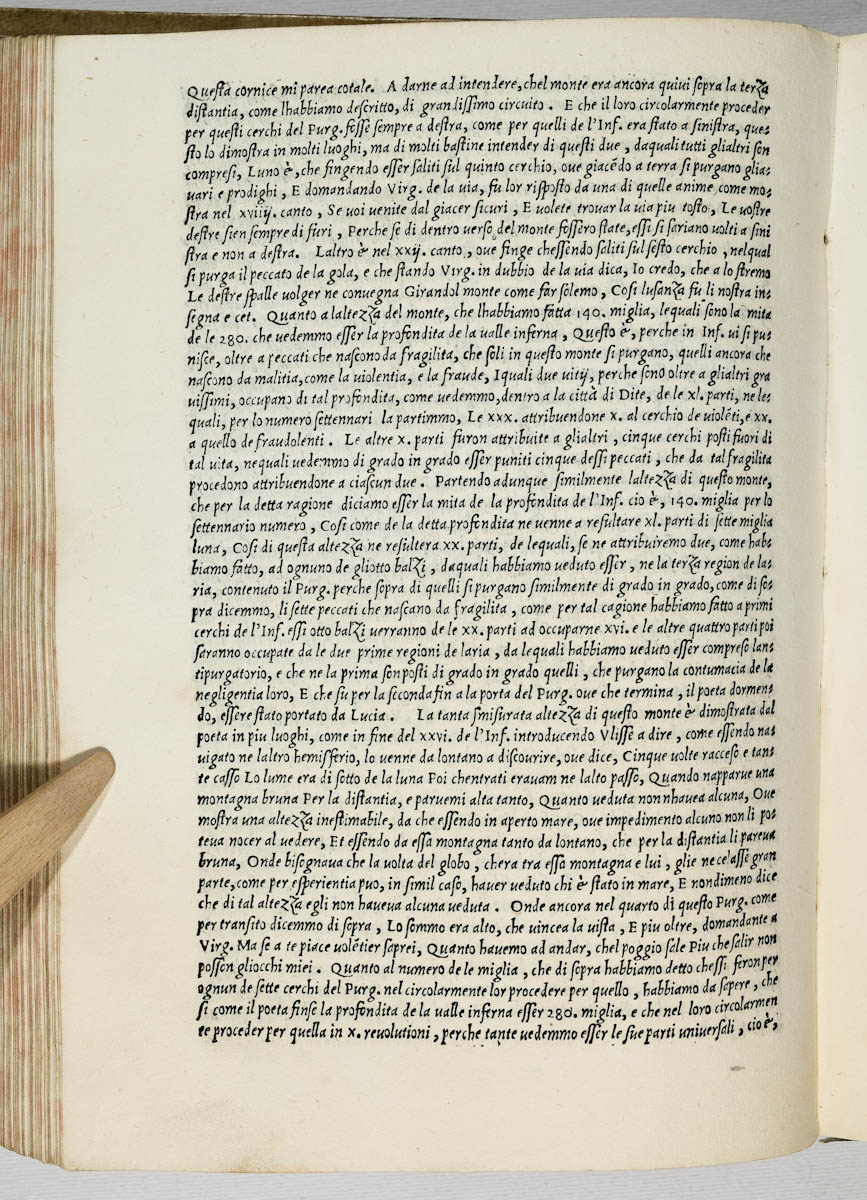 Questa cornice mi parea cotale. A darne ad intendere, chel monte era ancora quivi sopra la terza
distantia, come lhabbiamo descritto, di grandissimo circuito. E che il loro circolarmente proceder
per questi cerchi del Purg. fosse sempre a destra, come per quelli de l'Inf. era stato a sinistra, que-
sto lo dimostra in molti luoghi, ma di molti bastine intender di questi due, daquali tutti glialtri son
compresi, Luno è, che fingendo esser saliti sul quinto cerchio, oue giacēdo a terra si purgano glia-
uari e prodighi, E domandando Virg. de la uia, fu lor risposto da una di quelle anime come mo-
stra nel xviiij. canto, Se uoi uenite dal giacer sicuri, E uolete trouar la uia piu tosto, Le uostre
destre sien sempre di furi, Perche se di dentro uerso del monte fossero state, essi si sariano uolti a sini
stra e non a destra. Laltro è nel xxij. canto, oue finge chessendo saliti sul sesto cerchio, nelqual
si purga il peccato de la gola, e che stando Virg. in dubbio de la uia dica, Io credo, che a lo stremo
Le destre spalle uolger ne conuegna Girandol monte come far solemo, Cosi lusanza fu li nostra in-
segna e cet. Quanto a laltezza del monte, che lhabbiamo fatta 140. miglia, lequali sono la mita
de le 280. che uedemmo esser la profondita de la ualle inferna, Questo è, perche in Inf. ui si pu-
nisce, oltre a peccati che nascono da fragilita, che soli in questo monte si purgano, quelli ancora che
nascono da malitia, come la uiolentia, e la fraude, Iquali due uitij, perche sono oltre a glialtri gra
uissimi, occupano di tal profondita, come uedemmo, dentro a la città di Dite, de le xl. parti, ne les
quali, per lo numero settennari la partimmo, Le xxx. attribuendone x. al cerchio de uiolēti, e xx.
a quello de fraudolenti. Le altre x. parti furon attribuite a glialtri, cinque cerchi posti fuori di
tal uita, nequali uedemmo di grado in grado esser puniti cinque dessi peccati, che da tal fragilita
procedono attribuendone a ciascun due. Partendo adunque similmente laltezza di questo monte,
che per la detta ragione diciamo esser la mita de la profondita de l'Inf. cio è, 140. miglia per lo
settennario numero, Cosi come de la detta profondita ne uenne a resultare xl. parti di sette miglia
luna, Cosi di questa altezza ne resultera xx. parti, de lequali, se ne attribuiremo due, come hab-
biamo fatto, ad ognuno de gliotto balzi, daquali habbiamo ueduto esser, ne la terza region de la-
ria, contenuto il Purg. perche sopra di quelli si purgano similmente di grado in grado, come di so-
pra dicemmo, li sette peccati che nascano da fragilita, come per tal cagione habbiamo fatto a primi
cerchi de l'Inf. essi otto balzi uerranno de le xx. parti ad occuparne xvi. e le altre quattro parti poi
saranno occupate da le due prime regioni de laria, da lequali habbiamo ueduto esser compreso lan-
tipurgatorio, e che ne la prima son posti di grado in grado quelli, che purgano la contumacia de la
negligentia loro, E che su per la seconda fin a la porta del Purg. oue che termina, il poeta dormen-
do, essere stato portato da Lucia. La tanta smisurata altezza di questo monte è dimostrata dal
poeta in piu luoghi, come in fine del xxvi. de l'Inf. introducendo Vlisse a dire, come essendo na-
uigato ne laltro hemisferio, lo uenne da lontano a discourire, oue dice, Cinque uolte racceso e tan-
te casso Lo lume era di sotto de la luna Poi chentrati erauam ne lalto passo, Quando napparue una
montagna bruna Per la distantia, e paruemi alta tanto, Quanto ueduta non nhauea alcuna, Oue
mostra una altezza inestimabile, da che essendo in aperto mare, oue impedimento alcuno non li po-
teua nocer al uedere, Et essendo da essa montagna tanto da lontano, che per la distantia li pareua
bruna, Onde bisognaua che la uolta del globo, chera tra essa montagna e lui, glie ne celasse gran
parte, come per esperientia puo, in simil caso, hauer ueduto chi è stato in mare, E nondimeno dice
che di tal altezza egli non haueua alcuna ueduta. Onde ancora nel quarto di questo Purg. come
per transito dicemmo di sopra, Lo sommo era alto, che uincea la uista, E piu oltre, domandante a
Virg. Ma se a te piace uolētier saprei, Quanto hauemo ad andar, chel poggio sale Piu che salir non
posson gliocchi miei. Quanto al numero de le miglia, che di sopra habbiamo detto chessi feron per
ognun de sette cerchi del Purg. nel circolarmente lor procedere per quello, habbiamo da sapere, che
si come il poeta finse la profondita de la ualle inferna esser 280. miglia, e che nel loro circolarmen
te proceder per quella in x. reuolutioni, perche tante uedemmo esser le sue parti uniuersali, cio è,